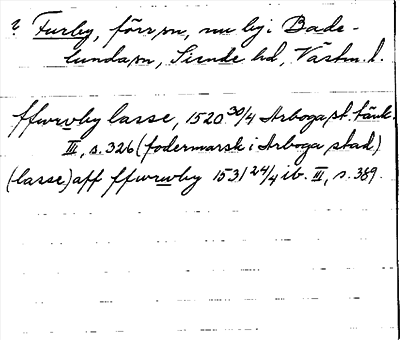 ? Furby, förr sn, nu by i Bade-
lunda sn, Siende hd, Västm. l.
ffwrwby lasse, 1520 30/4 Arboga st. tänk.
III, s. 326 (fodermarsk i Arboga stad)
(lasse) aff ffwrwby 1531 24/4 ib. III, s. 389.